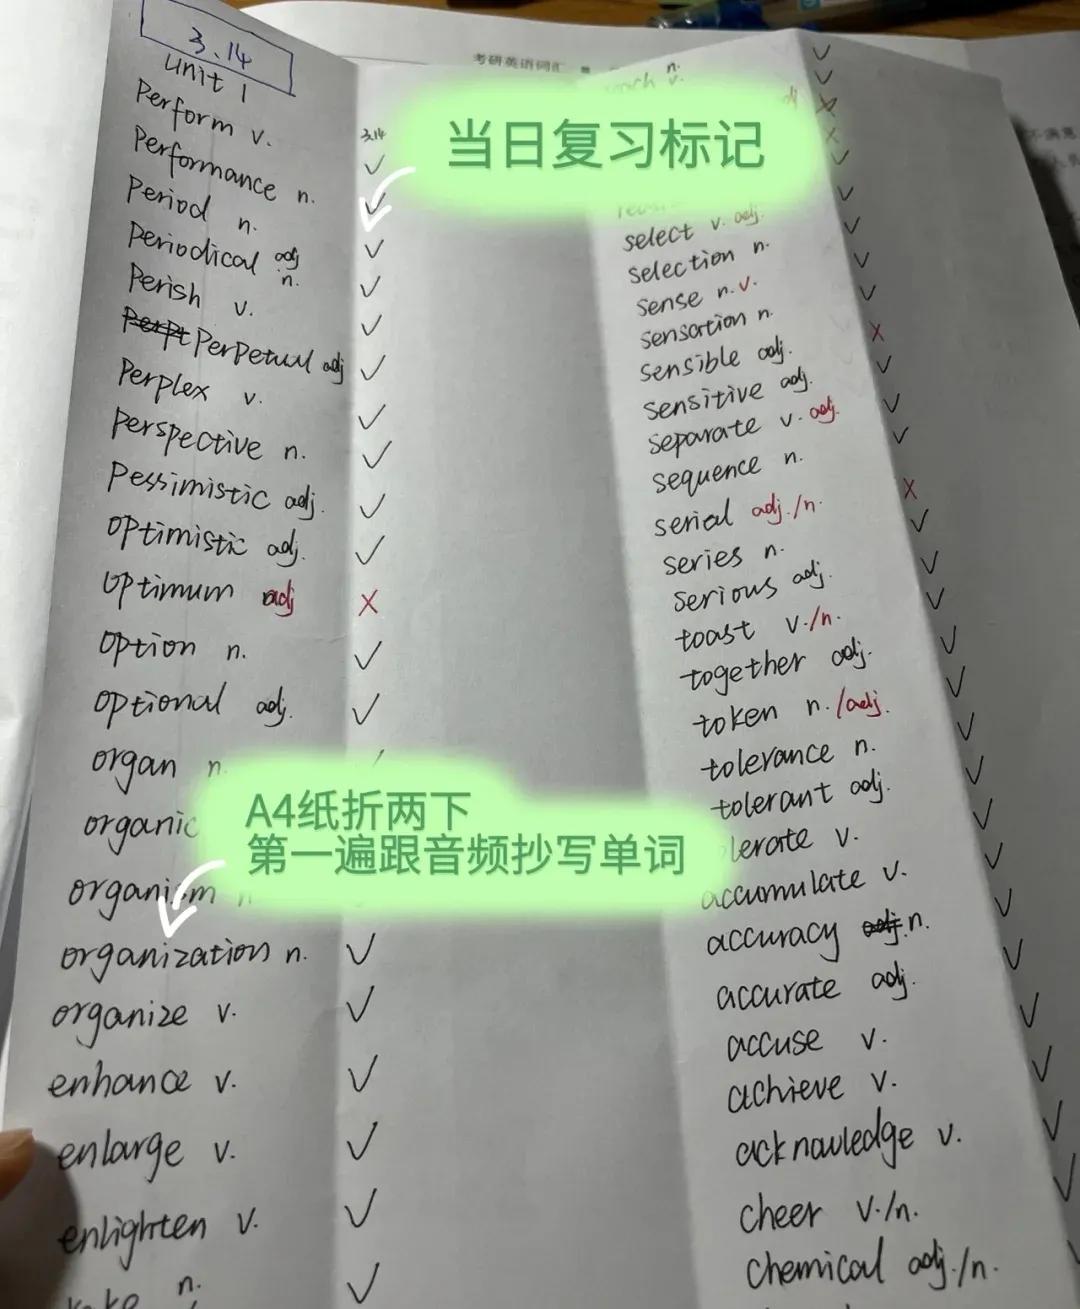 3.14
unit 1
Perform v.
Performance n.
Period n.
Periodical adj n.
Perish v.
Perpetual adj
Perplex v.
Perspective n.
Pessimistic adj.
optimistic adj.
optimum adj
option n.
optional adj.
organ n.
organic
organism n
organization n.
organize v.
enhance v.
enlarge v.
enlighten v.
n.
3.14
考研英语词汇
当日复习标记
A4纸折两下
第一遍跟音频抄写单词
n.
v.
select v. adj.
selection n.
sense n. v.
sensation n.
sensible adj.
sensitive adj.
separate v. adj.
sequence n.
serial adj./n.
series n.
serious adj.
toast v./n.
together adj.
token n./adj.
tolerance n.
tolerant adj.
lerate v.
accumulate v.
accuracy adj. n.
accurate adj.
accuse v.
achieve v.
acknowledge v.
cheer v./n.
chemical adj./n.